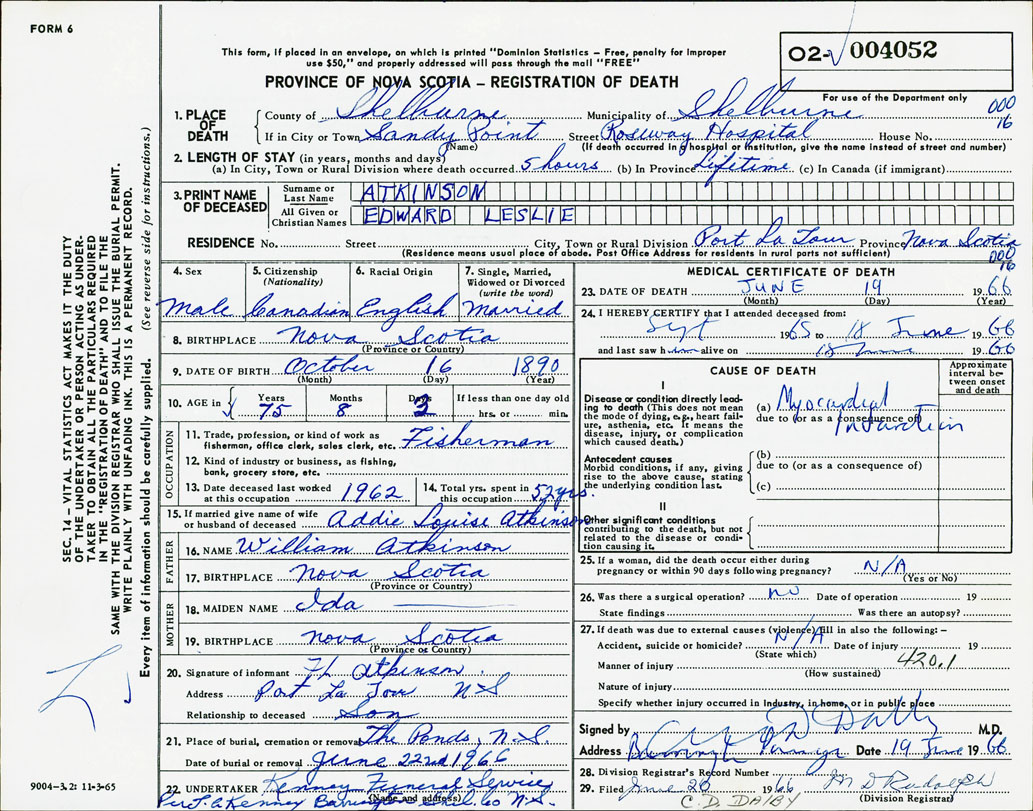 FORM 6
This form, if placed in an envelope, on which is printed "Dominion Statistics – Free, penalty for improper
use $50," and properly addressed will pass through the mail "FREE"
PROVINCE OF NOVA SCOTIA – REGISTRATION OF DEATH
02- 004052
For use of the Department only
000
16
1. PLACE OF DEATH
County of Shelburne Municipality of Shelburne
If in City or Town Sandy Point Street Roseway Hospital House No.
(Name) (If death occurred in hospital or institution, give the name instead of street and number)
2. LENGTH OF STAY (in years, months and days)
(a) In City, Town or Rural Division where death occurred 5 hours (b) In Province Lifetime (c) In Canada (if immigrant)
3. PRINT NAME OF DECEASED
Surname or Last Name ATKINSON
All Given or Christian Names EDWARD LESLIE
RESIDENCE No. Street City, Town or Rural Division Port La Tour Province Nova Scotia
(Residence means usual place of abode. Post Office Address for residents in rural parts not sufficient)
000
16
4. Sex
Male
5. Citizenship
(Nationality)
Canadian
6. Racial Origin
English
7. Single, Married,
Widowed or Divorced
(write the word)
Married
8. BIRTHPLACE Nova Scotia
(Province or Country)
9. DATE OF BIRTH October 16 1890
(Month) (Day) (Year)
10. AGE in Years Months Days If less than one day old
75 8 3 hrs. or min.
OCCUPATION
11. Trade, profession, or kind of work as
fisherman, office clerk, sales clerk, etc. Fisherman
12. Kind of industry or business, as fishing,
bank, grocery store, etc.
13. Date deceased last worked
at this occupation 1962
14. Total yrs. spent in
this occupation 52 yrs.
15. If married give name of wife
or husband of deceased Addie Louise Atkinson
FATHER
16. NAME William Atkinson
17. BIRTHPLACE Nova Scotia
(Province or Country)
MOTHER
18. MAIDEN NAME Ida
19. BIRTHPLACE Nova Scotia
(Province or Country)
20. Signature of informant Atkinson
Address Port La Tour NS
Relationship to deceased Son
21. Place of burial, cremation or removal The Ponds, N.S.
Date of burial or removal June 22nd 1966
22. UNDERTAKER Kenney Funeral Service
(Name and address)
N.S.
MEDICAL CERTIFICATE OF DEATH
23. DATE OF DEATH JUNE 19 1966
(Month) (Day) (Year)
24. I HEREBY CERTIFY that I attended deceased from:
Sept 1965 to 18 June 1966
and last saw him alive on 18 June 1966
CAUSE OF DEATH
Approximate
interval be-
tween onset
and death
I
Disease or condition directly lead-
ing to death (This does not mean
the mode of dying, e.g., heart fail-
ure, asthenia, etc. It means the
disease, injury, or complication
which caused death.)
(a) Myocardial
due to (or as a consequence of)
Infarction
Antecedent causes
Morbid conditions, if any, giving
rise to the above cause, stating
the underlying condition last.
(b)
due to (or as a consequence of)
(c)
II
Other significant conditions
contributing to the death, but not
related to the disease or condi-
tion causing it.
25. If a woman, did the death occur either during
pregnancy or within 90 days following pregnancy? N/A
(Yes or No)
26. Was there a surgical operation? no Date of operation 19
State findings Was there an autopsy?
27. If death was due to external causes (violence) fill in also the following:–
Accident, suicide or homicide? N/A Date of injury 19
(State which)
420.1
Manner of injury
(How sustained)
Nature of injury
Specify whether injury occurred in Industry, in home, or in public place
Signed by M.D.
Address Date 19 June 1966
28. Division Registrar's Record Number
29. Filed June 20 1966 M D Rudolph
(Division Registrar)
C. D. DALBY
SEC. 14 – VITAL STATISTICS ACT MAKES IT THE DUTY
OF THE UNDERTAKER OR PERSON ACTING AS UNDER-
TAKER TO OBTAIN ALL THE PARTICULARS REQUIRED
IN THE "REGISTRATION OF DEATH" AND TO FILE THE
SAME WITH THE DIVISION REGISTRAR WHO SHALL ISSUE THE BURIAL PERMIT.
WRITE PLAINLY WITH UNFADING INK. THIS IS A PERMANENT RECORD.
Every item of information should be carefully supplied. (See reverse side for instructions.)
9004-3.2: 11-3-65